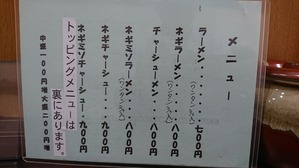 メニュー
ラーメン・・・・・・・・七００円
(ワンタン入)
ネギラーメン・・・・・・八００円
(ワンタン入)
チャーシューメン・・・・八００円
ネギミソラーメン・・・・八００円
(ワンタン入)
ネギチャーシュー・・・・九００円
ネギミソチャーシュー・九００円
トッピングメニューは
裏にあります。
中盛一００円増 大盛二００円増